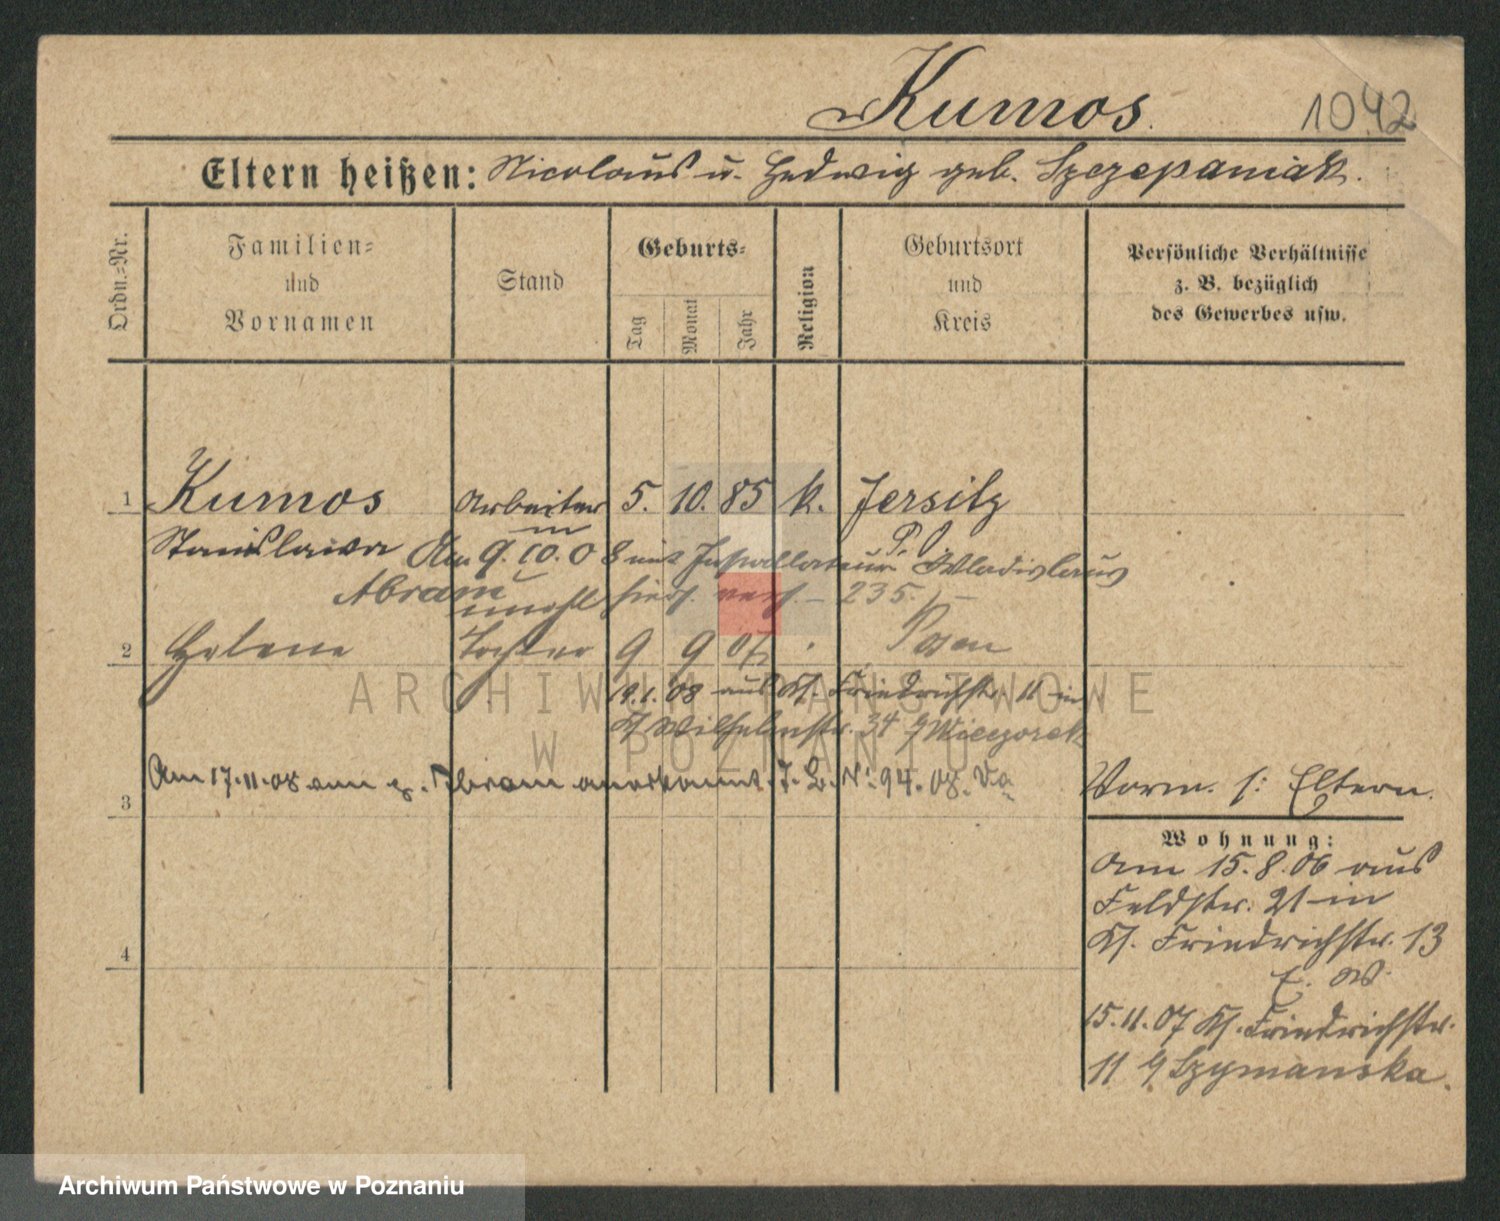 Kumos.
1042
Eltern heißen: Nicolaus u. Hedwig geb. Szczepaniak.
Ordn.=Nr.
Familien=
und
Vornamen
Stand
Geburts=
Tag
Monat
Jahr
Religion
Geburtsort
und
Kreis
Persönliche Verhältnisse
z. B. bezüglich
des Gewerbes usw.
1 Kumos Arbeiter 5. 10. 85 k. Jersitz
in P. O.
Stanislawa Am 9. 10. 08 mit Installateur Wladislaus
Abram hier verh. – 235.
2 Helene Tochter 9 9 07 Posen
19.1.08 aus Kl. Friedrichstr. 11 in
Kl. Wilhelmstr. 34 Wieczorek
3 Am 17.11.08 von Abram anerkannt. J. B. N: 94. 08. Va
Vorm. s: Eltern.
Wohnung:
Am 15.8.06 aus
Feldstr. 21 in
Kl. Friedrichstr. 13
15.11.07 Kl. Friedrichstr.
11 Szymanska.
4
ARCHIWUM PAŃSTWOWE
W POZNANIU
Archiwum Państwowe w Poznaniu